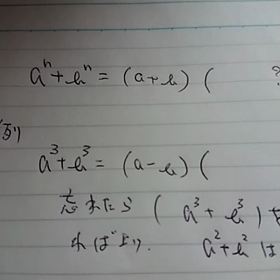 aⁿ + bⁿ = (a + b) (
例)
a³ + b³ = (a - b) (
忘れたら (a³ + b³)
れば より. a² + b² は